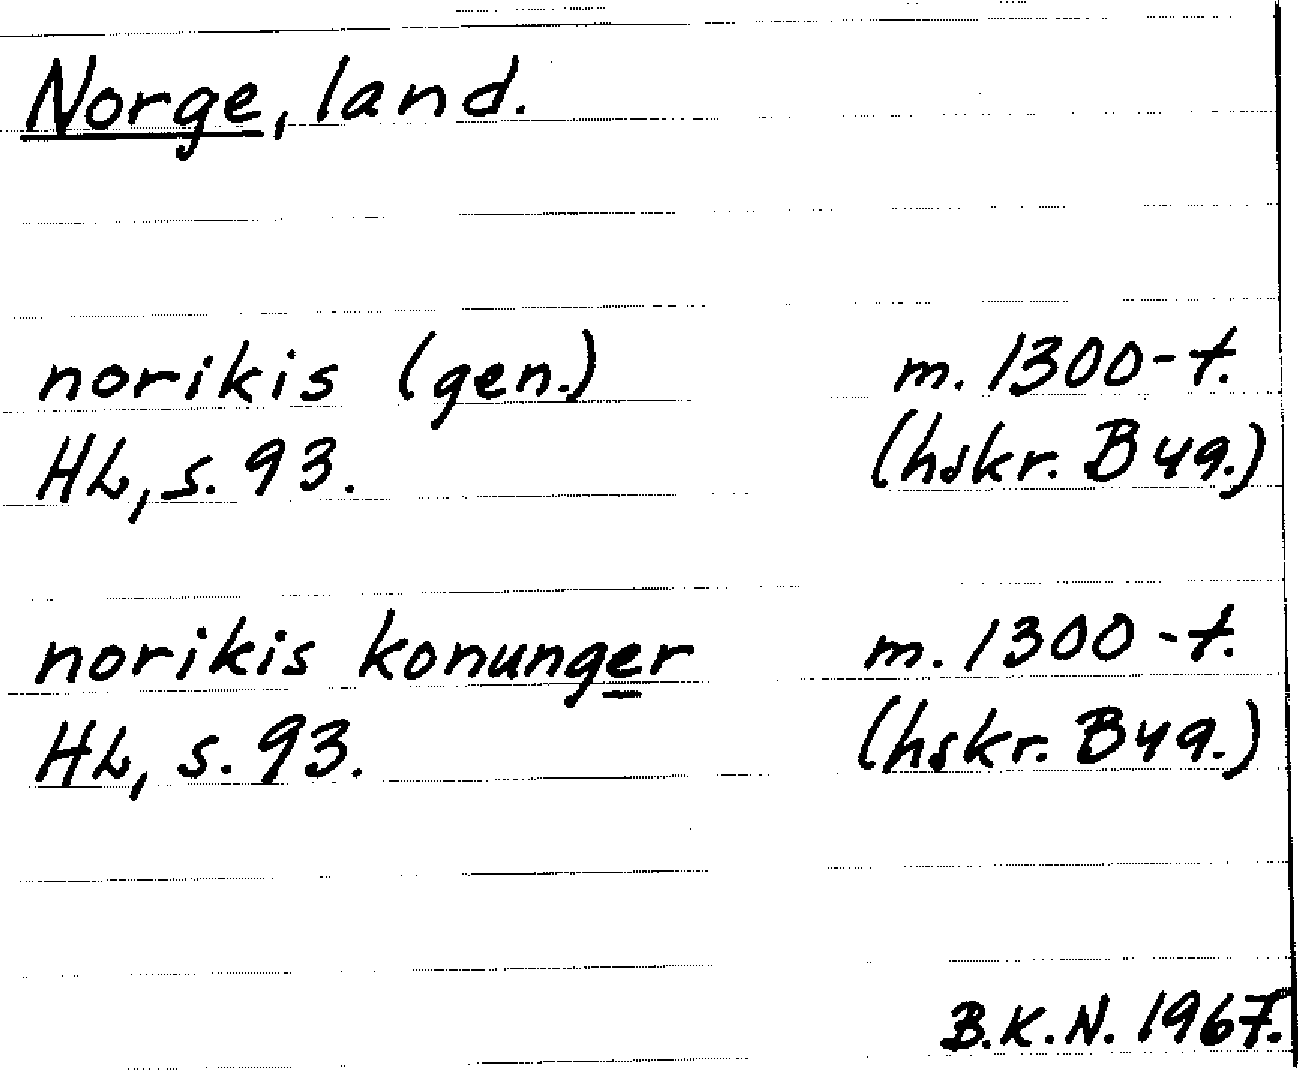 Norge, land.
norikis (gen.) m. 1300-t.
HL, s. 93. (hskr. B 49.)
norikis konunger m. 1300-t.
HL, s. 93. (hskr. B 49.)
B.K.N. 1967.